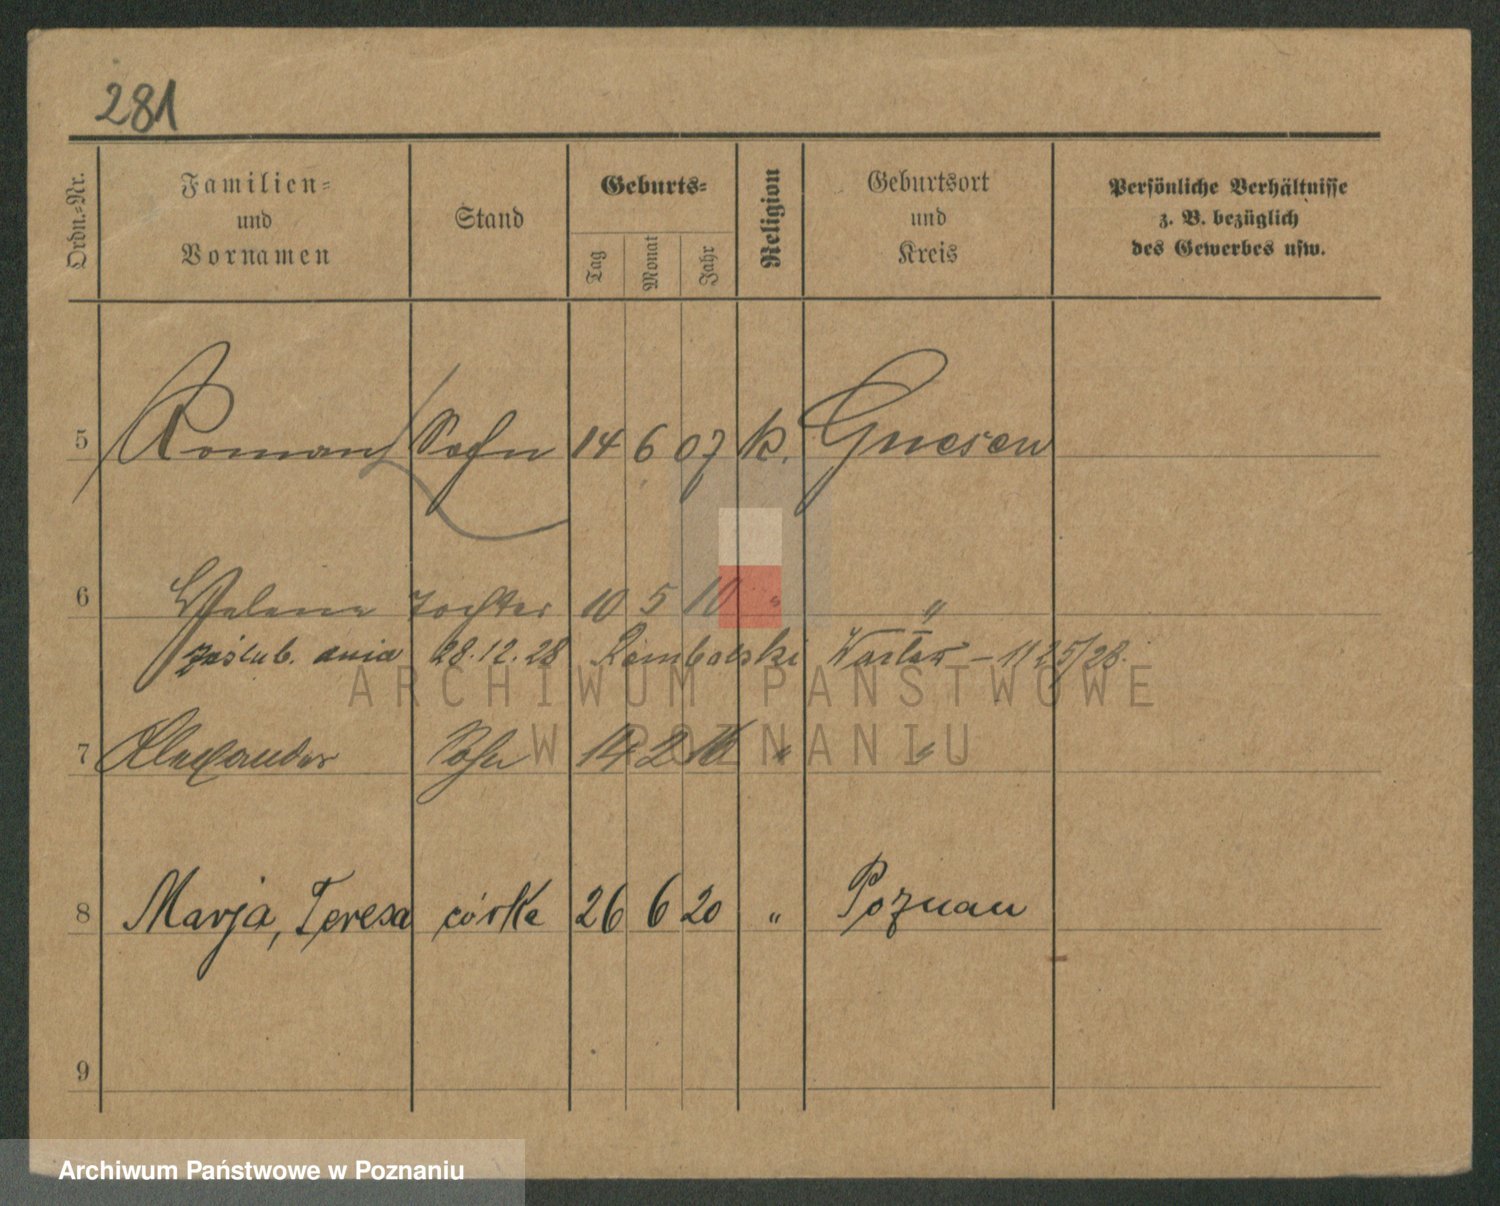 281
Ordn.-Nr.
Familien-
und
Vornamen
Stand
Geburts-
Tag
Monat
Jahr
Religion
Geburtsort
und
Kreis
Persönliche Verhältnisse
z. B. bezüglich
des Gewerbes usw.
5 Roman Sohn 14 6 07 k. Gnesen
6 Helene Tochter 10 5 10 " "
zaślub. dnia 28.12.28 - 1125/28.
7 Alexander Sohn 14 2 " "
8 Marja, Teresa córka 26 6 20 " Poznan
9
ARCHIWUM PAŃSTWOWE
W POZNANIU
Archiwum Państwowe w Poznaniu